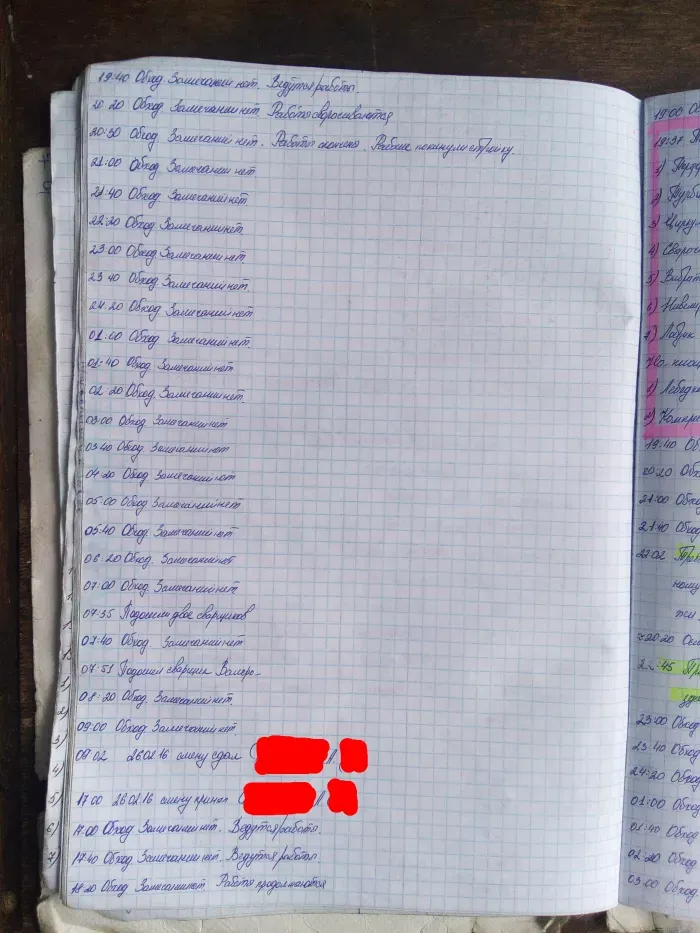 19:40 Обход. Замечаний нет. Ведутся работы.
20:20 Обход Замечаний нет. Работы сворачиваются
20:30 Обход. Замечаний нет. Работы окончены. Рабочие покинули стройку.
21:00 Обход. Замечаний нет
21:40 Обход Замечаний нет
22:20 Обход. Замечаний нет.
23:00 Обход Замечаний нет
23:40 Обход Замечаний нет.
24:20 Обход Замечаний нет.
01:00 Обход Замечаний нет.
01:40 Обход Замечаний нет
02:20 Обход. Замечаний нет.
03:00 Обход Замечаний нет
03:40 Обход Замечаний нет
04:20 Обход Замечаний нет
05:00 Обход Замечаний нет
05:40 Обход. Замечаний нет
06:20 Обход. Замечаний нет
07:00 Обход Замечаний нет.
07:35 Подошли двое сварщиков
07:40 Обход. Замечаний нет
07:51 Подошел сварщик
08:20 Обход. Замечаний нет.
09:00 Обход Замечаний нет
09:02 26.02.16 смену сдал
17:00 26.02.16 смену принял
17:00 Обход Замечаний нет. Ведутся работы.
17:40 Обход Замечаний нет. Ведутся работы.
18:20 Обход Замечаний нет. Работы продолжаются
3)
4)
5)
6)
7)
19:00 Об
19:37
1)
2) Турби
3) Циркул
4) Свароч
5) Вибрат
6) Нивели
7) Лобзик
1) Лебедка
2) Компрес
19:40 Об
20:20 Обхо
21:00 Обхо
21:40 Обход
22:02
ному
20:20
45
23:00 Обход
23:40 Обход
24:20 Обход
01:00 Обход
01:40 Обход
02:20 Обход
03:00 Обход.